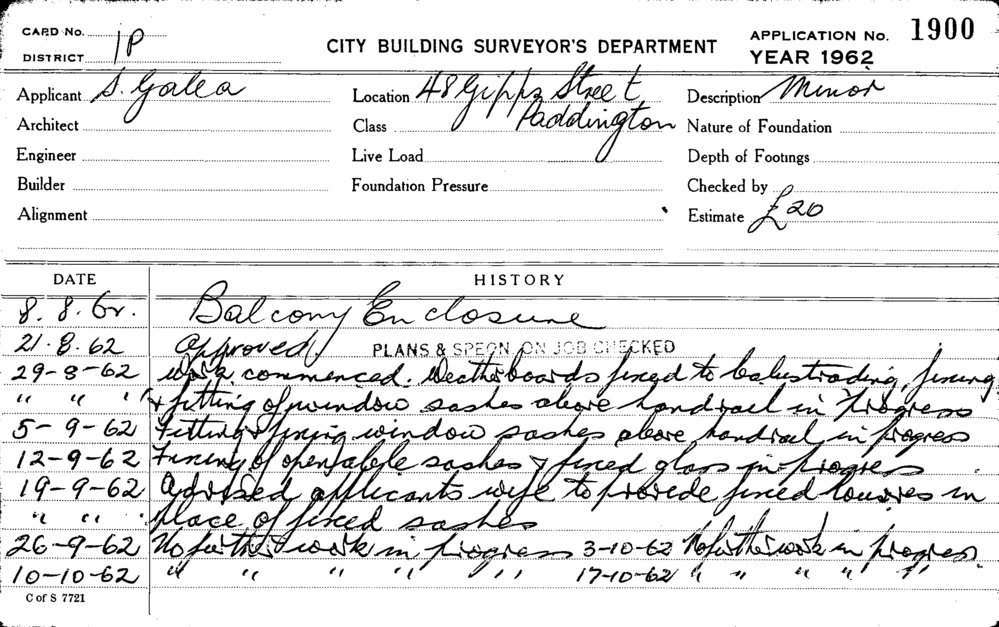 CARD No.
DISTRICT 1P
CITY BUILDING SURVEYOR'S DEPARTMENT
APPLICATION No. 1900
YEAR 1962
Applicant S. Galea
Location 48 Gipps Street
Description Minor
Architect
Class Paddington
Nature of Foundation
Engineer
Live Load
Depth of Footings
Builder
Foundation Pressure
Checked by
Alignment
Estimate £20
DATE HISTORY
8. 8. 62. Balcony Enclosure
21. 8. 62 Approved PLANS & SPECN. ON JOB CHECKED
29-8-62 Work commenced. Weatherboards fixed to balustrading, fixing
" " " & fitting of window sashes above handrail in progress
5-9-62 Fitting & fixing window sashes above handrail in progress
12-9-62 Fixing of openable sashes & fixed glass in progress
19-9-62 Advised applicants wife to provide fixed louvres in
" " " place of fixed sashes
26-9-62 No further work in progress 3-10-62 No further work in progress.
10-10-62 " " " " " 17-10-62 " " " " "
C of S 7721